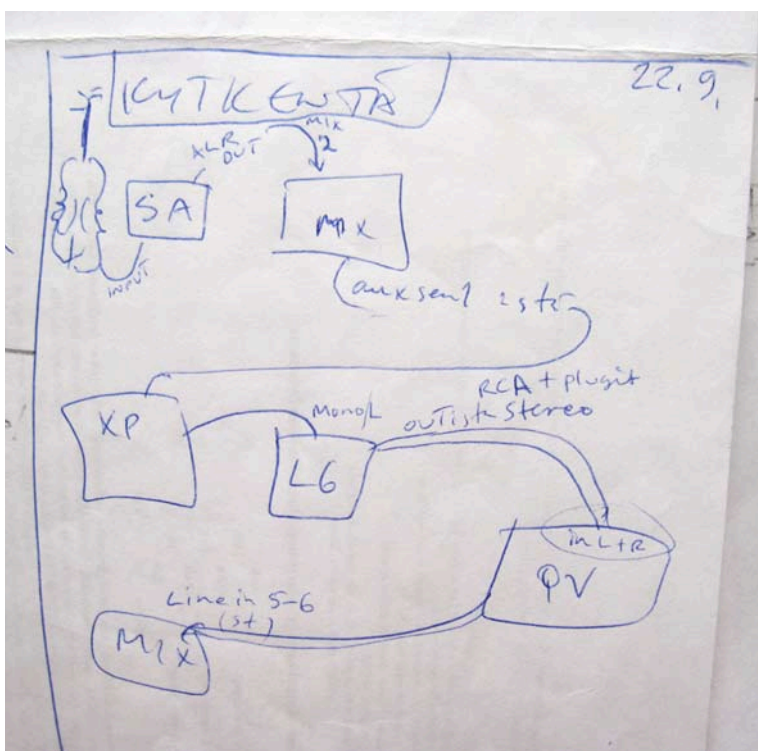 KYTKENTÄ
22.9.
XLR OUT
MIX 2
SA
MIX
INPUT
aux send 1:stä
XP
Mono/L
RCA + plugit
OUTista stereo
L6
in L+R
QV
Line in 5-6
(st)
MIX